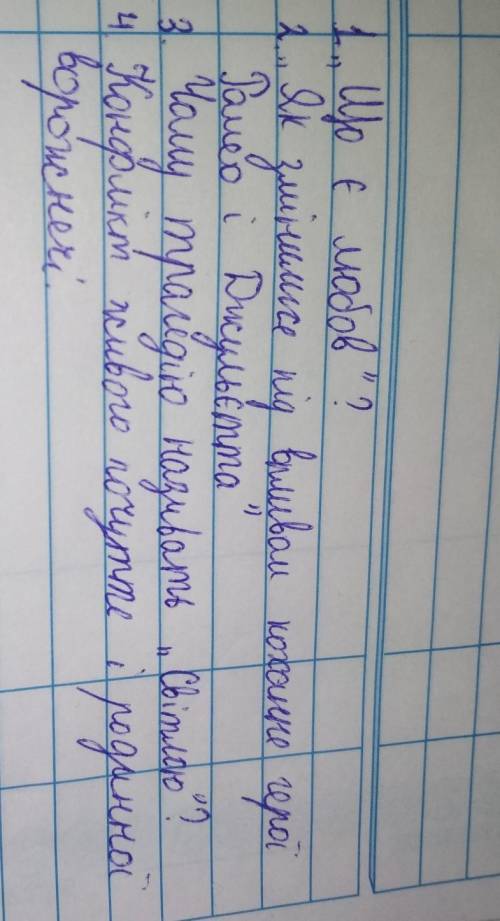 1. „Що є любов"?
2. „Як змінились під впливом кохання герої
Ромео і Джульєтта"
3. Чому трагедію називать „Світлою"?
4. Конфлікт живого почуття і родинної
ворожнечі.